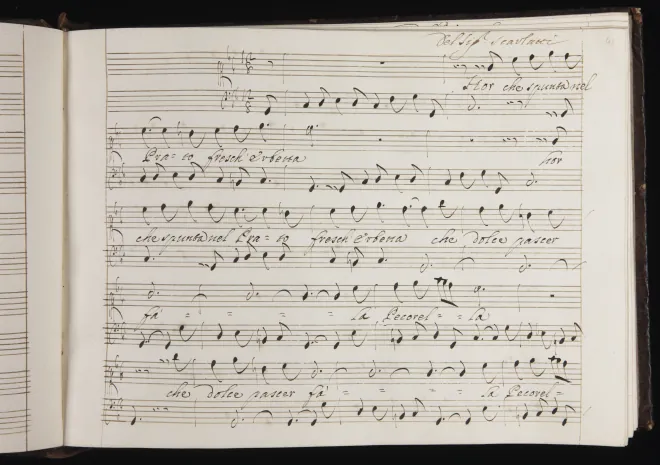 Del Sigr Scarlatti
Hor che spunta nel
Pra= to fresch' erbetta hor
che spunta nel Pra= to fresch' erbetta che dolce pascer
fà = = = = la Pecorel= = la
che dolce pascer fà = = = = la Pecorel=